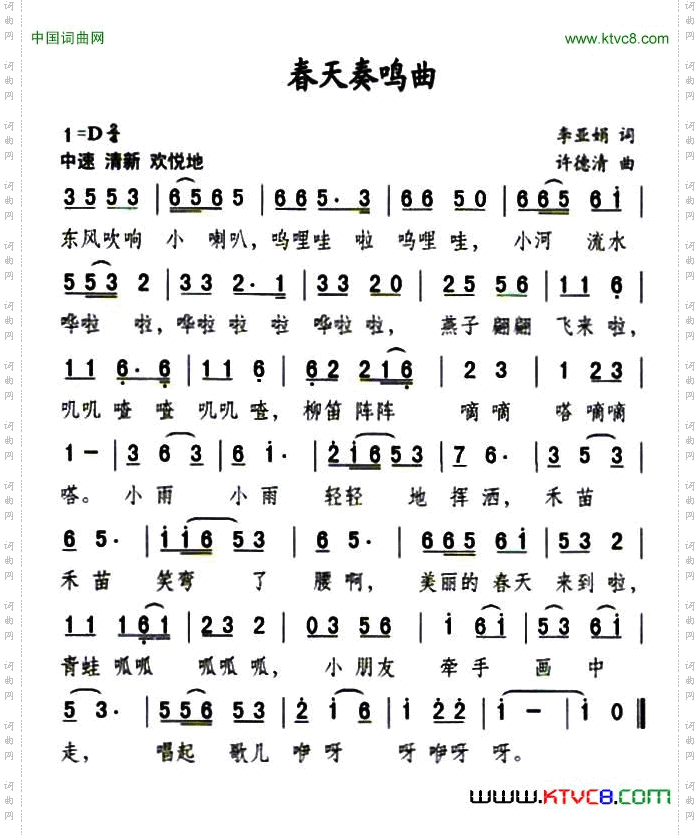 中国词曲网 www.ktvc8.com
春天奏鸣曲
1=D 2/4 李亚娟 词
中速 清新 欢悦地 许德清 曲
3 5 5 3 | 6 5 6 5 | 6 6 5· 3 | 6 6 5 0 | 6 6 5 6 i |
东风吹响 小 喇叭，呜哩哇 啦 呜哩 哇， 小河 流水
5 5 3 2 | 3 3 2· 1 | 3 3 2 0 | 2 5 5 6 | 1 1 6 |
哗啦 啦，哗啦 啦 啦 哗啦 啦， 燕子 翩翩 飞来 啦，
1 1 6· 6 | 1 1 6 | 6 2 2 1 6 | 2 3 | 1 2 3 |
叽叽 喳 喳 叽叽 喳，柳笛 阵阵 嘀 嘀 嗒 嘀嘀
1 － | 3 6 3 | 6 i· | 2 i 6 5 3 | 7 6· | 3 5 3 |
嗒。 小 雨 小 雨 轻轻 地 挥 洒，禾 苗
6 5· | i i 6 5 3 | 6 5· | 6 6 5 6 i | 5 3 2 |
禾 苗 笑弯 了 腰 啊， 美丽的 春天 来到 啦，
1 1 1 6 1 | 2 3 2 | 0 3 5 6 | i 6 i | 5 3 6 i |
青蛙 呱呱 呱呱 呱， 小 朋友 牵 手 画 中
5 3· | 5 5 6 5 3 | 2 i 6 | i 2 2 | i － | i 0 ‖
走， 唱起 歌儿 咿 呀 呀 咿呀 呀。
www.KTVC8.COM